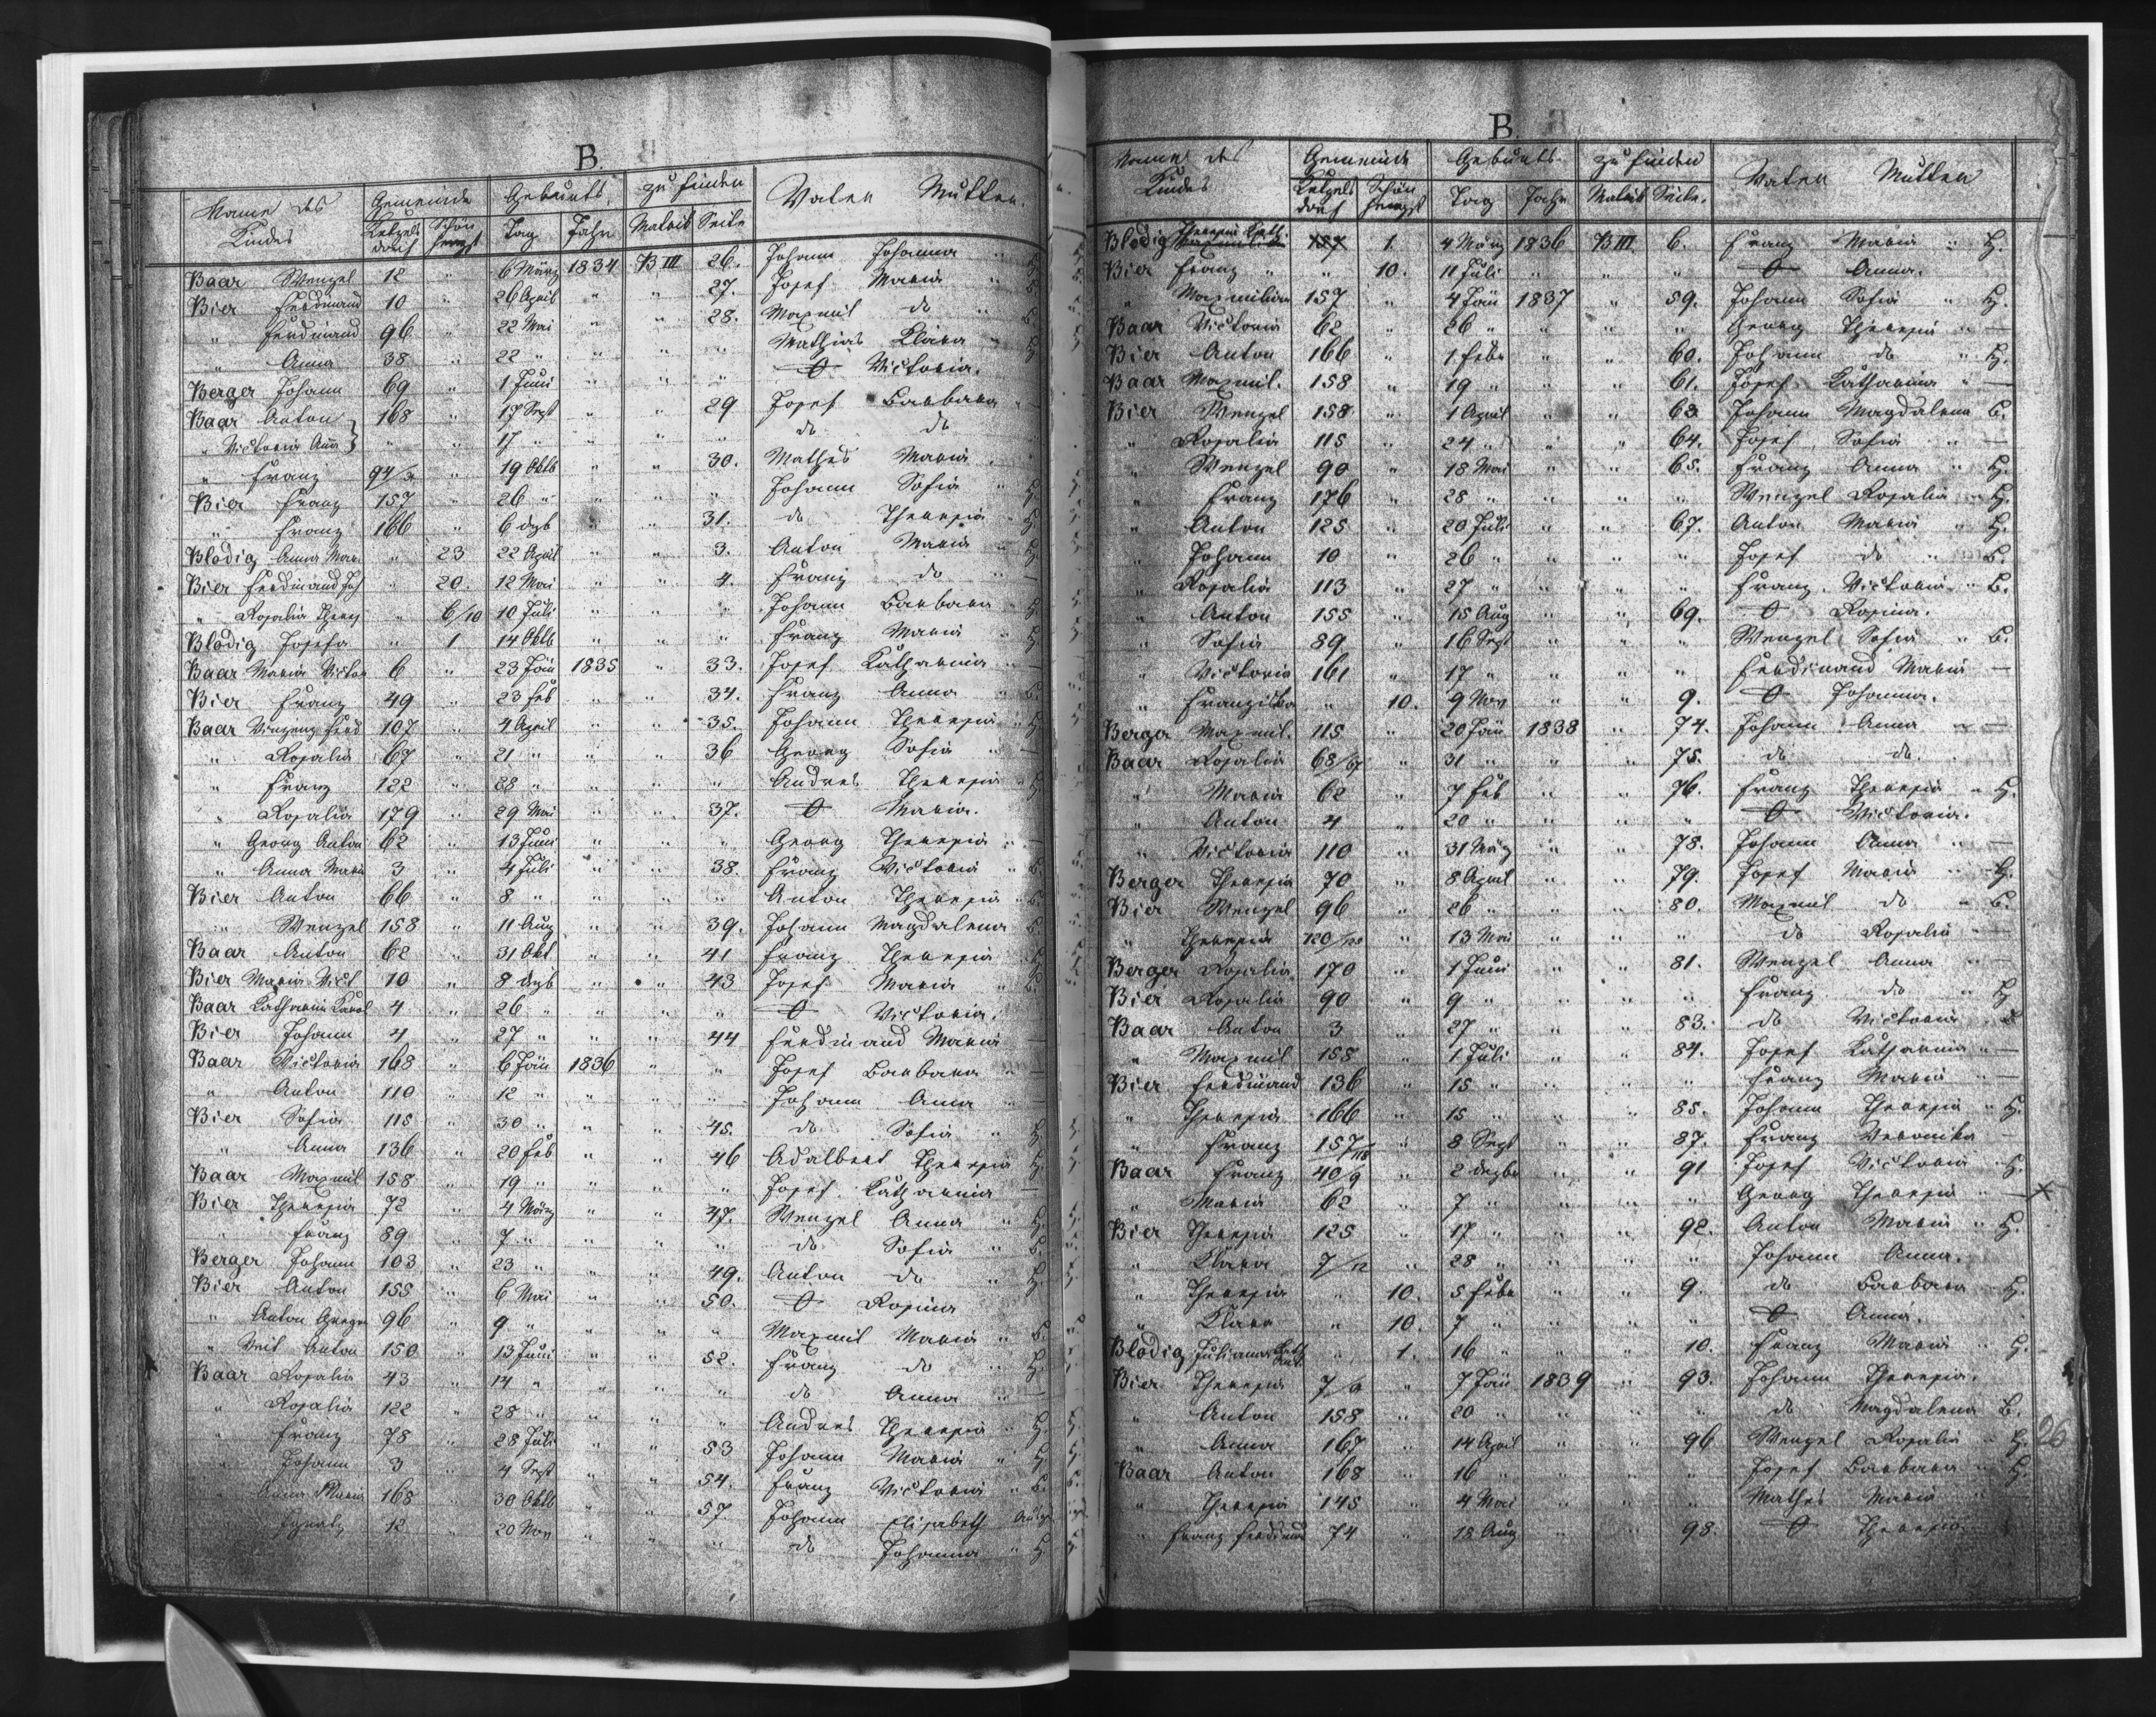 B.
Name des Kindes Gemeinde Geburts zu finden Vater Mutter.
Ketzels dorf Schön hengst Tag Jahr Matrik Seite
Baar Wenzel 12 " 6 März 1834 B III 26. Johann Johanna " H
Bier Ferdinand 10 " 26 April " " 27. Josef Maria "
" Ferdinand 96 " 22 Mai " " 28. Maxmil do "
" Anna 38 " 22 " " " " Mathias Klara "
Berger Johann 69 " 1 Juni " " " O Victoria.
Baar Anton 168 " 17 Sept " " 29 Josef Barbara "
" Victoria Anna " " 17 " " " " do do
" Franz 94/ " 19 Oktb " " 30. Mathes Maria "
Bier Franz 157 " 26 " " " " Johann Sofia "
" Franz 166 " 6 dezb " " 31. do Theresia "
Blodig Anna Mar. " 23 22 April " " 3. Anton Maria "
Bier Ferdinand Joh " 20. 12 Mai " " 4. Franz do " —
" Rosalia Theres " 6/10 10 Juli " " " Johann Barbara " H
Blodig Josefa " 1 14 Oktb " " " Franz Maria " H
Baar Maria Victor 6 " 23 Jän 1835 " 33. Josef Katharina " —
Bier Franz 49 " 23 Feb " " 34. Franz Anna "
Baar Vinzenz Ferd 107 " 4 April " " 35. Johann Theresia " H
" Rosalia 67 " 21 " " " 36 Georg Sofia " —
" Franz 122 " 28 " " " " Andres Theresia " H
" Rosalia 179 " 29 Mai " " 37. O Maria.
" Georg Anton 62 " 13 Juni " " " Georg Theresia " —
" Anna Maria 3 " 4 Juli " " 38. Franz Victoria " B.
Bier Anton 66 " 8 " " " " Anton Theresia " B.
" Wenzel 158 " 11 Aug " " 39. Johann Magdalena B.
Baar Anton 62 " 31 Okt " " 41 Franz Theresia " H
Bier Maria Vict 10 " 8 dezb " " 43 Josef Maria " B.
Baar Katharina Karol 4 " 26 " " " " O Victoria.
Bier Johann 4 " 27 " " " 44 Ferdinand Maria —
Baar Victoria 168 " 6 Jän 1836 " " Josef Barbara —
" Anton 110 " 12 " " " " Johann Anna " —
Bier Sofia 115 " 30 " " " 45. do Sofia " H
" Anna 136 " 20 Feb " " 46 Adalbert Theresia H.
Baar Maxmil 158 " 19 " " " " Josef Katharina —
Bier Theresia 72 " 4 März " " 47. Wenzel Anna " H.
" Franz 89 " 7 " " " " do Sofia " B.
Berger Johann 103 " 23 " " " 49. Anton do " H.
Bier Anton 155 " 6 Mai " " 50. O Rosina
" Anton Gregor 96 " 9 " " " " Maxmil Maria " B.
" Veit Anton 150 " 13 Juni " " 52. Franz do " H.
Baar Rosalia 43 " 14 " " " " do Anna " —
" Rosalia 122 " 28 " " " " Andres Theresia " H.
" Franz 78 " 28 Juli " " 53 Johann Maria " H
" Johann 3 " 4 Sept " " 54. Franz Victoria " B.
" Anna Maria 168 " 30 Oktb " " 57. Johann Elisabeth
" Ignatz 12 " 20 Nov " " " do Johanna " H.
B.
Name des Kindes Gemeinde Geburts- zu finden Vater Mutter
Ketzels dorf Schön hengst Tag Jahr Matrik Seite.
Blodig Theresia Kath. 1. 4 März 1836 B III. 6. Franz Maria " H.
Bier Franz " " 10. 11 Juli " " " O Anna.
" Maxmilian 157 " 4 Jän 1837 " 59. Johann Sofia " H.
Baar Victoria 62 " 26 " " " " Georg Theresia " —
Bier Anton 166 " 1 Febr " " 60. Johann do " H.
Baar Maxmil. 158 " 19 " " " 61. Josef Katharina " —
Bier Wenzel 158 " 1 April " " 63. Johann Magdalena B.
" Rosalia 115 " 24 " " " 64. Josef Sofia " —
" Wenzel 90 " 18 Mai " " 65. Franz Anna " H.
" Franz 176 " 28 " " " " Wenzel Rosalia " H.
" Anton 125 " 20 Juli " " 67. Anton Maria " H.
" Johann 10 " 26 " " " " Josef do " B.
" Rosalia 113 " 27 " " " " Franz Victoria " B.
" Anton 155 " 15 Aug " " 69. O Rosina.
" Sofia 89 " 16 Sept " " " Wenzel Sofia " B.
" Victoria 161 " 17 " " " " Ferdinand Maria —
" Franziska " 10. 9 Nov " " 9. O Johanna.
Berger Maxmil. 115 " 20 Jän 1838 " 74. Johann Anna " —
Baar Rosalia 68/67 " 31 " " " 75. do do
" Maria 62 " 7 Feb " " 76. Franz Theresia " H.
" Anton 4 " 20 " " " " O Victoria.
" Victoria 110 " 31 März " " 78. Johann Anna " —
Berger Theresia 70 " 8 April " " 79. Josef Maria " H.
Bier Wenzel 96 " 26 " " " 80. Maxmil do " B.
" Theresia 120/ " 13 Mai " " " do Rosalia —
Berger Rosalia 170 " 1 Juni " " 81. Wenzel Anna " —
Bier Rosalia 90 " 9 " " " " Franz do " H
Baar Anton 3 " 27 " " " 83. do Victoria " B
" Maxmil 158 " 1 Juli " " 84. Josef Katharina " —
Bier Ferdinand 136 " 15 " " " " Franz Maria " —
" Theresia 166 " 15 " " " 85. Johann Theresia " H.
" Franz 157/118 " 8 Sept " " 87. Franz Veronika —
Baar Franz 40/9 " 2 dezbr " " 91 Josef Victoria " H.
" Maria 62 " 7 " " " " Georg Theresia " — X
Bier Theresia 125 " 17 " " " 92. Anton Maria " H.
" Klara 7/12 " 28 " " " " Johann Anna.
" Theresia " 10. 5 Febr " " 9. do Barbara " H.
" Klara " 10. 7 " " " " O Anna.
Blodig Juliana " 1. 16 " " " 10. Franz Maria " H.
Bier Theresia 7/9 " 7 Jän 1839 " 93. Johann Theresia.
" Anton 158 " 20 " " " " do Magdalena B.
" Anna 167 " 14 April " " 96 Wenzel Rosalia " H. 26
Baar Anton 168 " 16 " " " " Josef Barbara " H.
" Theresia 145 " 4 Mai " " " Mathes Maria "
" Franz Ferdinand 74 " 18 Aug " " 98. O Theresia